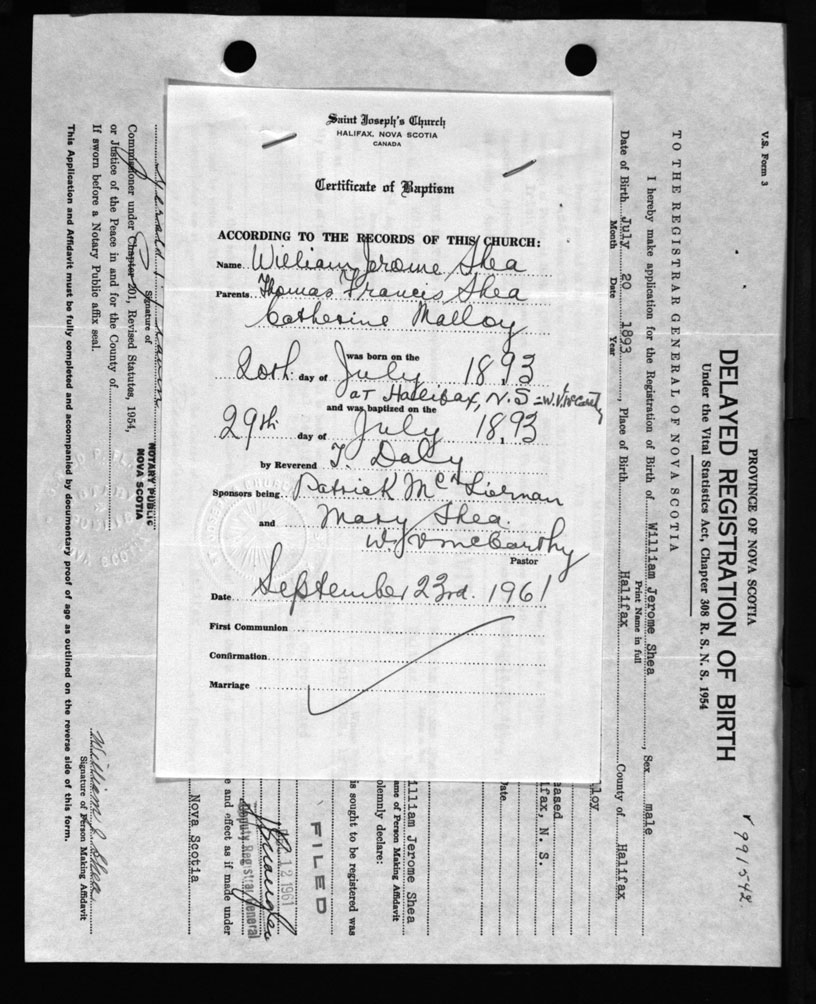 Saint Joseph's Church
HALIFAX, NOVA SCOTIA
CANADA
Certificate of Baptism
ACCORDING TO THE RECORDS OF THIS CHURCH:
Name William Jerome Shea
Parents Thomas Francis Shea
Catherine Malloy
was born on the
20th day of July 1893
at Halifax, N.S - W.V. McCarthy
and was baptized on the
29th day of July 1893
by Reverend T. Daly
Sponsors being Patrick
and Mary Shea
W. V McCarthy
Pastor
Date September 23rd. 1961
First Communion
Confirmation
Marriage
V.S. Form 3
PROVINCE OF NOVA SCOTIA
DELAYED REGISTRATION OF BIRTH
Under the Vital Statistics Act, Chapter 308 R. S. N. S. 1954
991542
TO THE REGISTRAR GENERAL OF NOVA SCOTIA
I hereby make application for the Registration of Birth of William Jerome Shea, Sex male
Print Name in full
Date of Birth July 20 1893, Place of Birth Halifax County of Halifax
Month Date Year
lloy
eased
ifax, N. S.
Date
illiam Jerome Shea
ame of Person Making Affidavit
olemnly declare:
is sought to be registered was
FILED
12 1961
Deputy Registrar General
e and effect as if made under
Nova Scotia
Signature of
NOTARY PUBLIC
NOVA SCOTIA
Commissioner under Chapter 201, Revised Statutes, 1954,
or Justice of the Peace in and for the County of
If sworn before a Notary Public affix seal.
William J Shea
Signature of Person Making Affidavit
This Application and Affidavit must be fully completed and accompanied by documentary proof of age as outlined on the reverse side of this form.